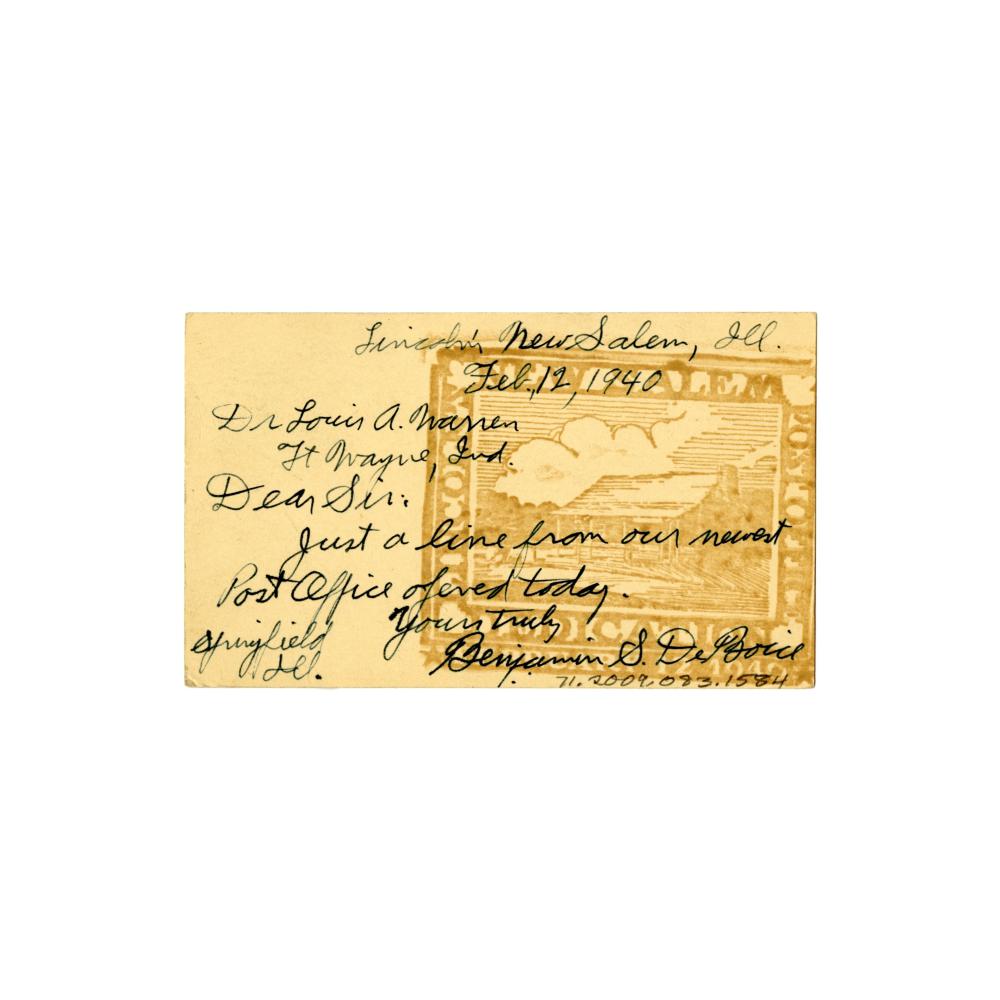 Lincoln's New Salem, Ill.
Feb. 12, 1940
Dr Louis A. Warren
Ft Wayne, Ind.
Dear Sir:
Just a line from our newest
Post Office opened today.
Yours truly
Benjamin S. DeBoice
Springfield
Ill.
71.2009.083.1584
LINCOLN
NEW SALEM
POST OFFICE
DEDICATION